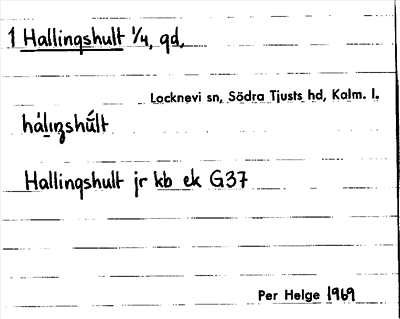 1 Hallingshult 1/4, gd,
Locknevi sn, Södra Tjusts hd, Kalm. l.
Hallingshult jr kb ek G37
Per Helge 1969